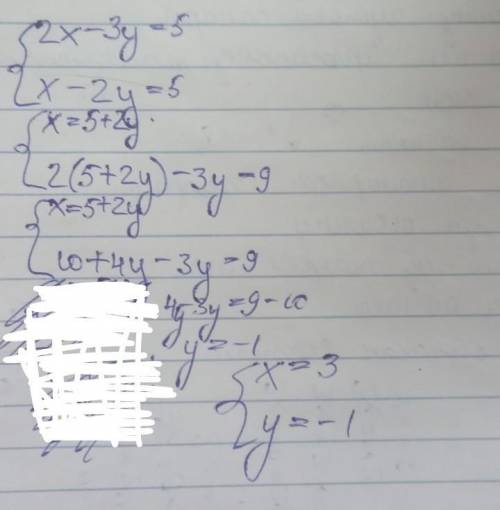 2x-3y=5
x-2y=5
x=5+2y.
2(5+2y)-3y=9
x=5+2y
10+4y-3y=9
4y-3y=9-10
y=-1
x=3
y=-1